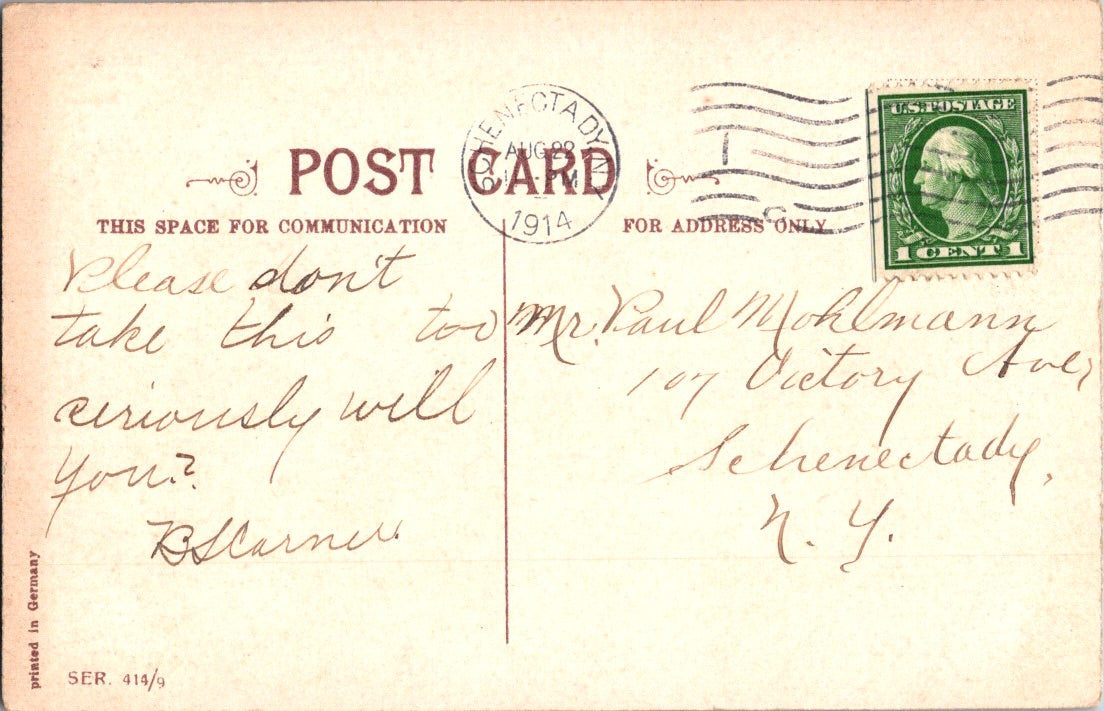 POST CARD
THIS SPACE FOR COMMUNICATION
FOR ADDRESS ONLY
SCHENECTADY, N.Y.
AUG 22
PM
1914
U.S. POSTAGE
1 CENT 1
Please don't
take this too
seriously will
you?
Mr. Paul Mohlmann
107 Victory Ave,
Schenectady,
N. Y.
printed in Germany
SER. 414/9